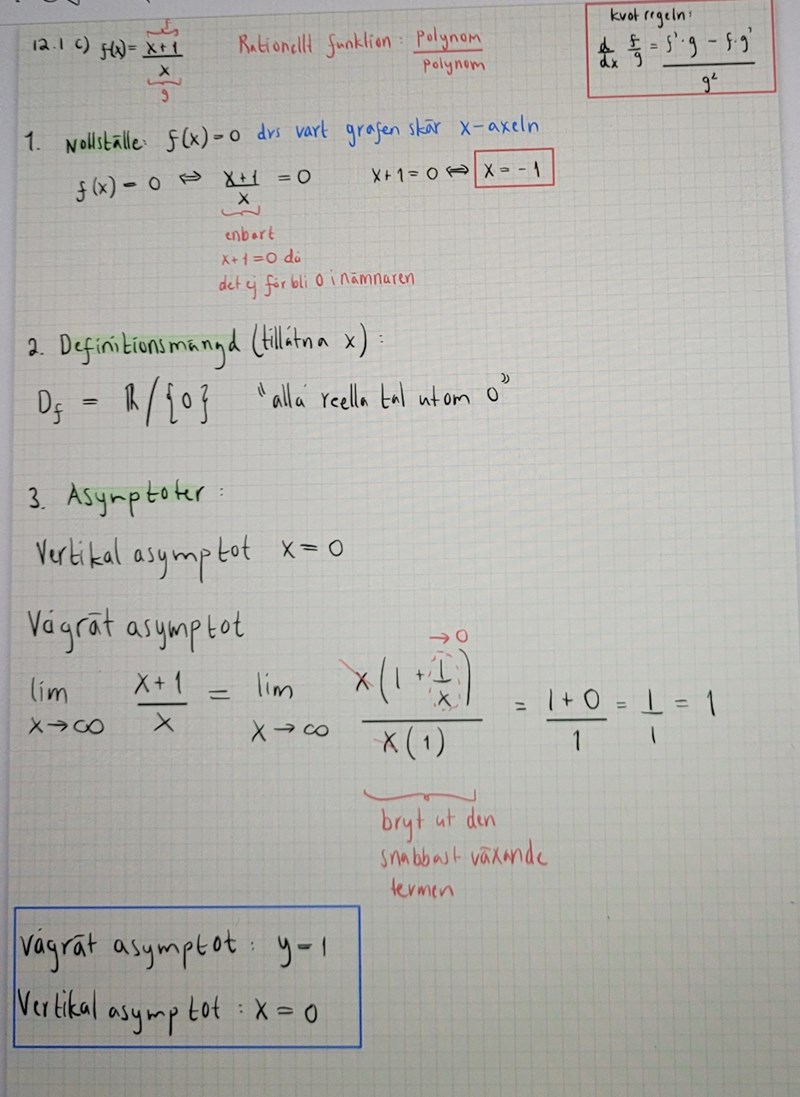 12.1 c) f(x) = x+1 / x
f
g
Rationellt funktion : polynom / polynom
kvotregeln:
d/dx f/g = f'·g - f·g' / g²
1. Nollställe: f(x)=0 dvs vart grafen skär x-axeln
f(x) = 0 ⇔ x+1 / x = 0 x+1=0 ⇔ x = -1
enbart
x+1=0 då
det ej får bli 0 i nämnaren
2. Definitionsmängd (tillåtna x) :
D_f = ℝ/{0} "alla reella tal utom 0"
3. Asymptoter :
Vertikal asymptot x = 0
Vågrät asymptot
→ 0
lim x→∞ x+1 / x = lim x→∞ x(1 + 1/x) / x(1) = 1+0 / 1 = 1/1 = 1
bryt ut den
snabbast växande
termen
Vågrät asymptot : y = 1
Vertikal asymptot : x = 0